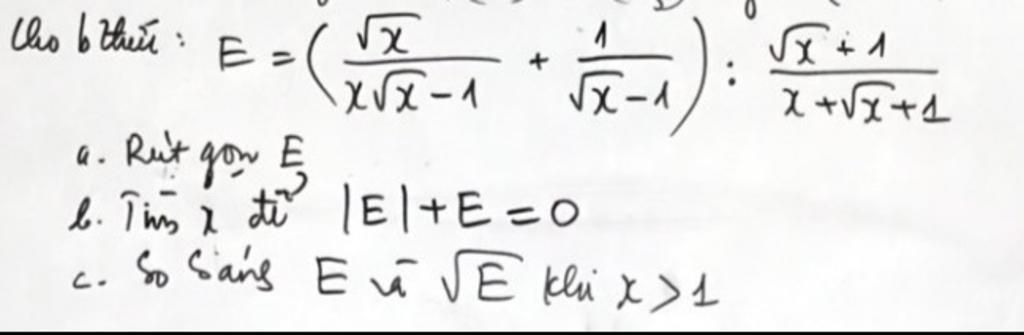 Cho b thức : E = ( √x / (x√x - 1) + 1 / (√x - 1) ) : (√x + 1) / (x + √x + 1)
a. Rút gọn E
b. Tìm x để |E| + E = 0
c. So sáng E và √E khi x > 1